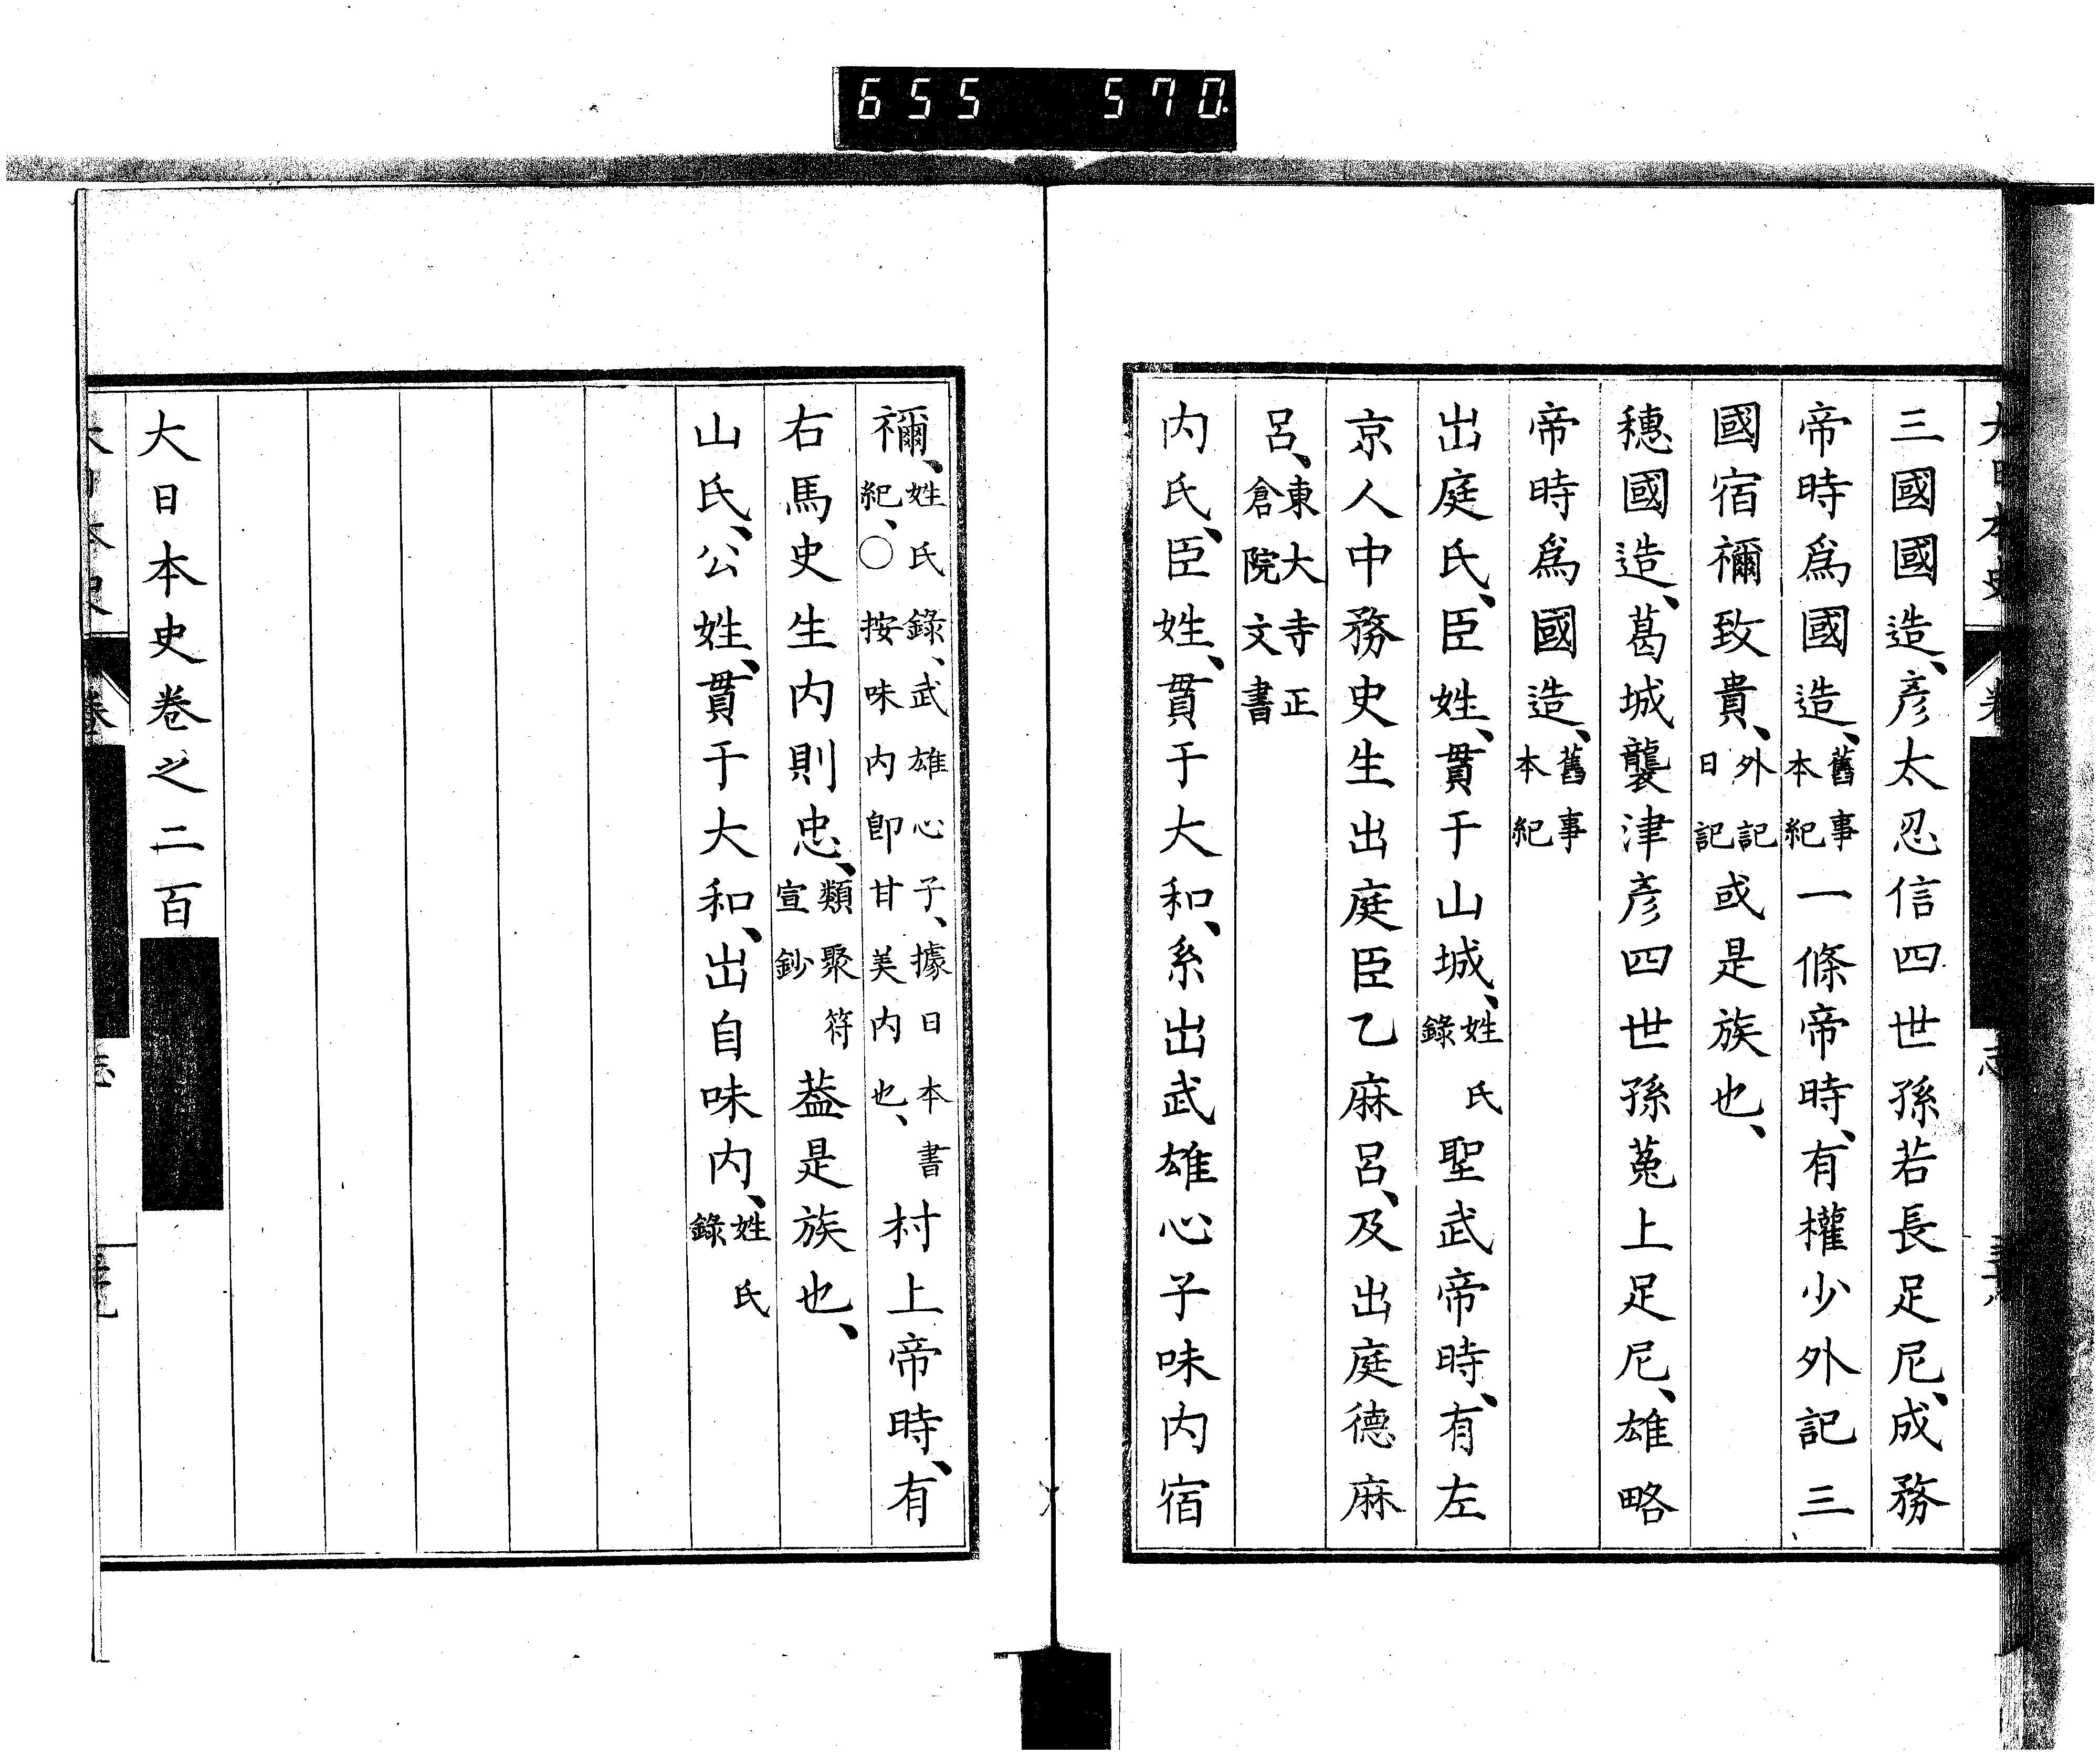 655 570.
三國國造、彥太忍信四世孫若長足尼、成務
帝時爲國造、舊事本紀一條帝時、有權少外記三
國宿禰致貴、外記日記或是族也、
穗國造、葛城襲津彥四世孫菟上足尼、雄略
帝時爲國造、舊事本紀
出庭氏、臣姓、貫于山城、姓氏錄聖武帝時、有左
京人中務史生出庭臣乙麻呂、及出庭德麻
呂、東大寺正倉院文書
內氏、臣姓、貫于大和、系出武雄心子味內宿
禰、姓氏錄、武雄心子、據日本書紀、〇按味內卽甘美內也、村上帝時、有
右馬史生內則忠、類聚符宣鈔葢是族也、
山氏、公姓、貫于大和、出自味內、姓氏錄
大日本史卷之二百